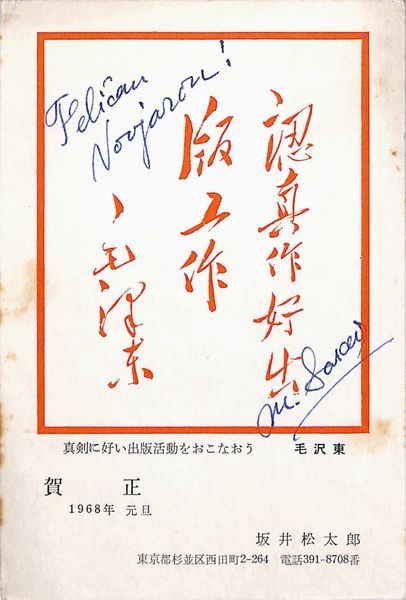 Feliĉan
Novjaron!
认真作好出
版工作
毛泽东
M. Sakai
真剣に好い出版活動をおこなおう 毛沢東
賀 正
1968年 元旦
坂井松太郎
東京都杉並区西田町2-264 電話391-8708番